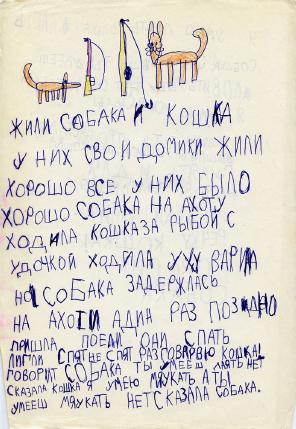 ЖИЛИ СОБАКА И КОШКА
У НИХ СВОИ ДОМИКИ ЖИЛИ
ХОРОШО ВСЕ У НИХ БЫЛО
ХОРОШО СОБАКА НА АХОТУ
ХОДИЛА КОШКА ЗА РЫБОЙ С
УДОЧКОЙ ХОДИЛА УХУ ВАРИЛА
НО СОБАКА ЗАДЕРЖЕЛАСЬ
НА АХОТИ АДИН РАЗ ПОЗДНО
ПРИШЛА ПОЕЛИ ОНИ СПАТЬ
ЛИГЛИ СПЯТ НЕ СПЯТ РАЗГОВАРВЮ КОШКА
ГОВОРИТ СОБАКА ТЫ УМЕЕШ ЛАЯТЬ НЕТ
СКАЗАЛА КОШКА Я УМЕЮ МЯУКАТЬ А ТЫ
УМЕЕШ МЯУКАТЬ НЕТ СКАЗАЛА СОБАКА.